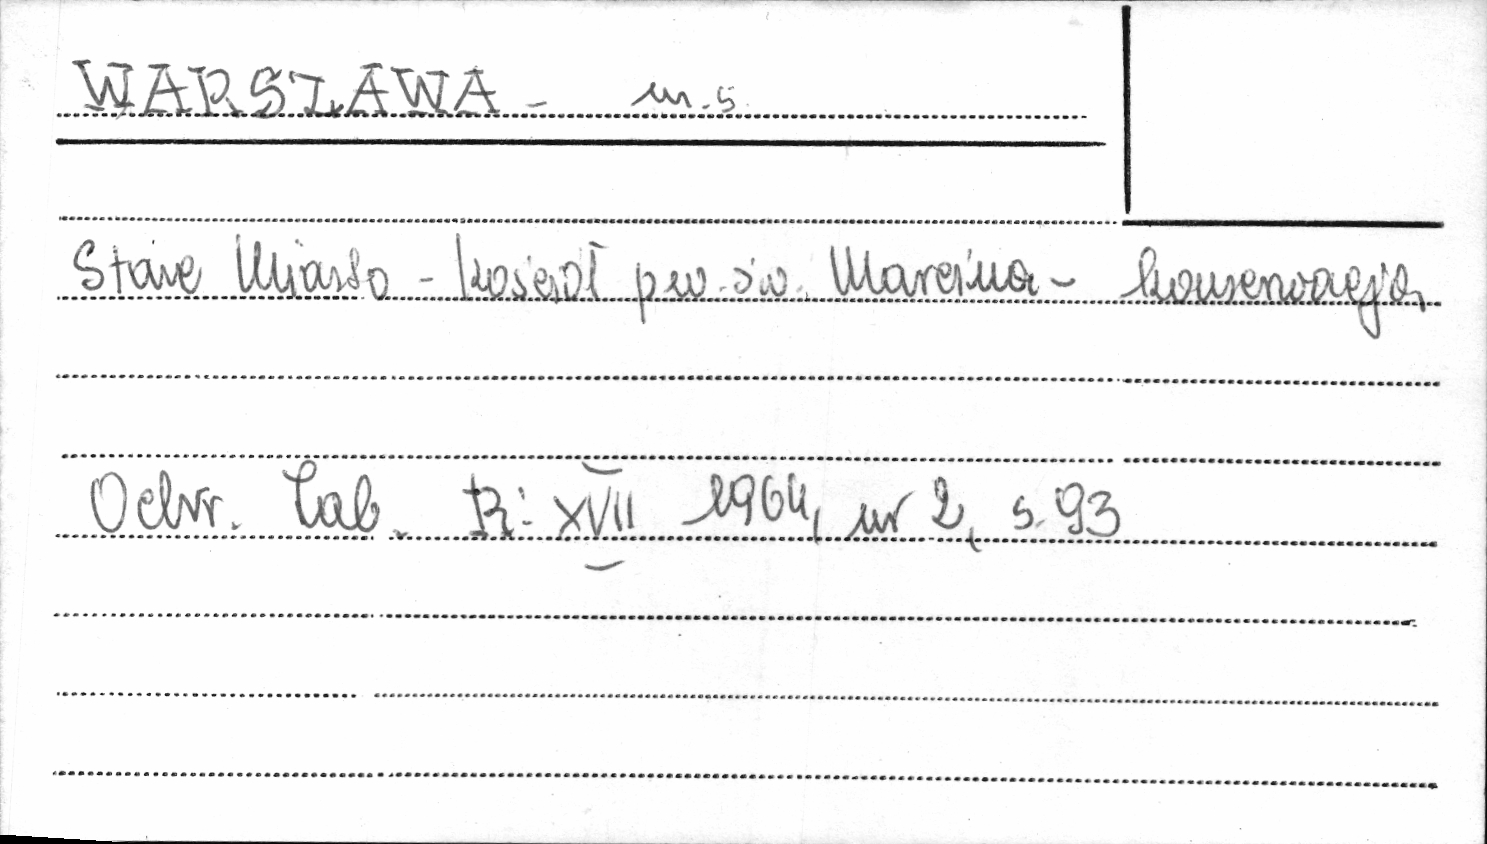 WARSZAWA - m.s.
Stare Miasto - kościół pw. św. Marcina - konserwacja
Ochr. Zab. R: XVII 1964, nr 2, s. 93